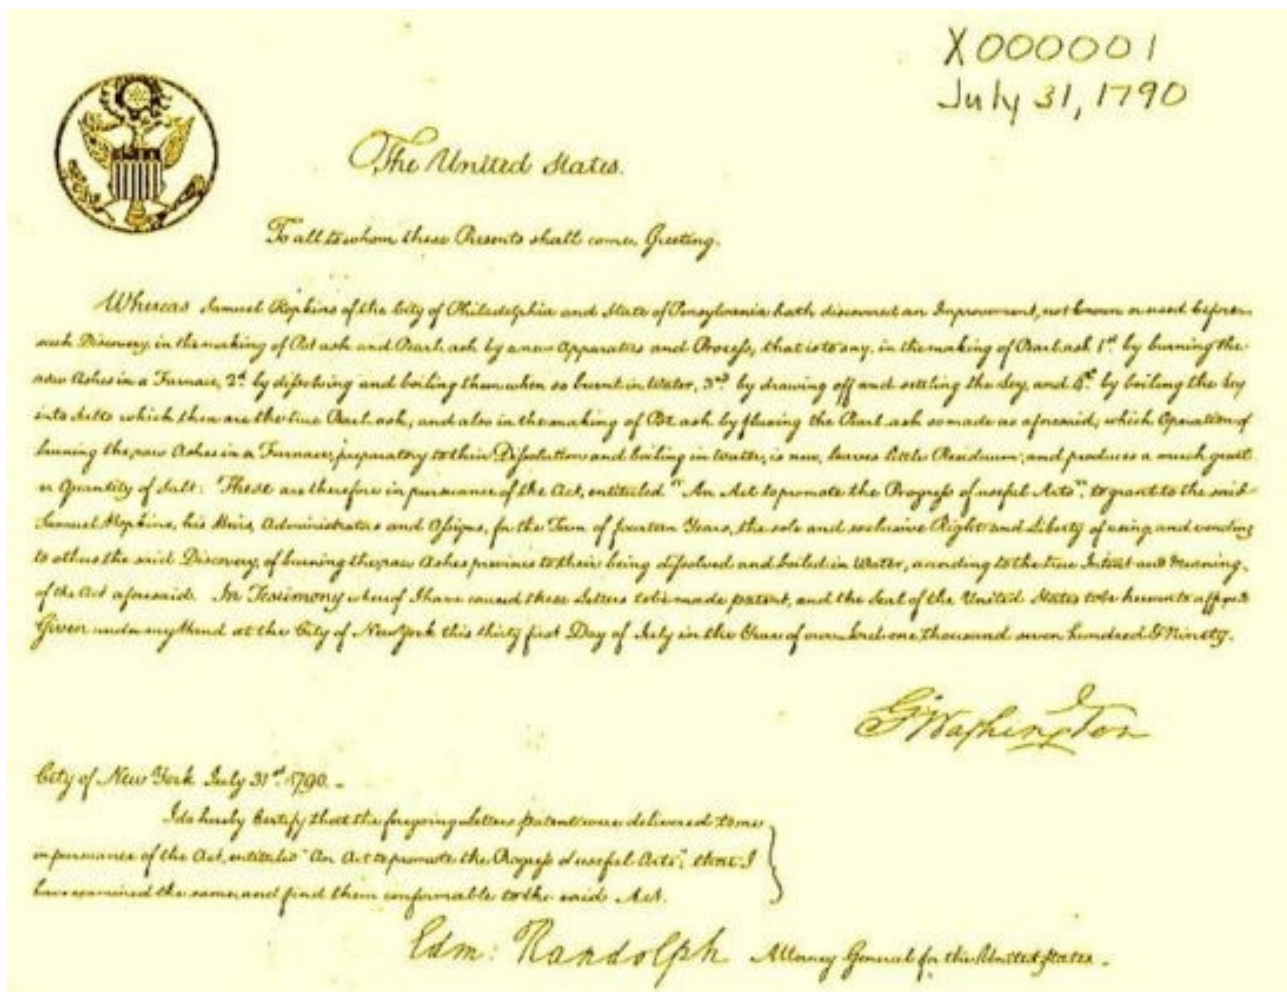 X000001
July 31, 1790
The United States.
To all to whom these Presents shall come, Greeting.
Whereas Samuel Hopkins of the City of Philadelphia and State of Pensylvania hath discovered an Improvement, not known or used before
such Discovery, in the making of Pot ash and Pearl ash by a new Apparatus and Process, that is to say, in the making of Pearl ash 1st. by burning the
raw Ashes in a Furnace, 2d. by dissolving and boiling them when so burnt in Water, 3rd. by drawing off and settling the Ley, and 4th. by boiling the Ley
into Salts which then are the true Pearl ash; and also in the making of Pot ash by fluxing the Pearl ash so made as aforesaid; which Operation of
burning the raw Ashes in a Furnace, preparatory to their Dissolution and boiling in Water, is new, leaves little Residuum; and produces a much great
er Quantity of Salt: These are therefore in pursuance of the Act, entituled "An Act to promote the Progress of useful Arts", to grant to the said
Samuel Hopkins, his Heirs, Administrators and Assigns, for the Term of fourteen Years, the sole and exclusive Right and Liberty of using, and vending
to others the said Discovery, of burning the raw Ashes previous to their being dissolved and boiled in Water, according to the true Intent and Meaning
of the Act aforesaid. In Testimony whereof I have caused these Letters to be made patent, and the Seal of the United States to be hereunto affixed
Given under my Hand at the City of New York this thirty first Day of July in the Year of our Lord one thousand seven hundred & Ninety.
G. Washington
City of New York July 31st. 1790. -
I do hereby Certify that the foregoing Letters patent were delivered to me
in pursuance of the Act, entituled "An Act to promote the Progress of useful Arts"; that I
have examined the same, and find them conformable to the said Act.
Edm: Randolph Attorney General for the United States. -